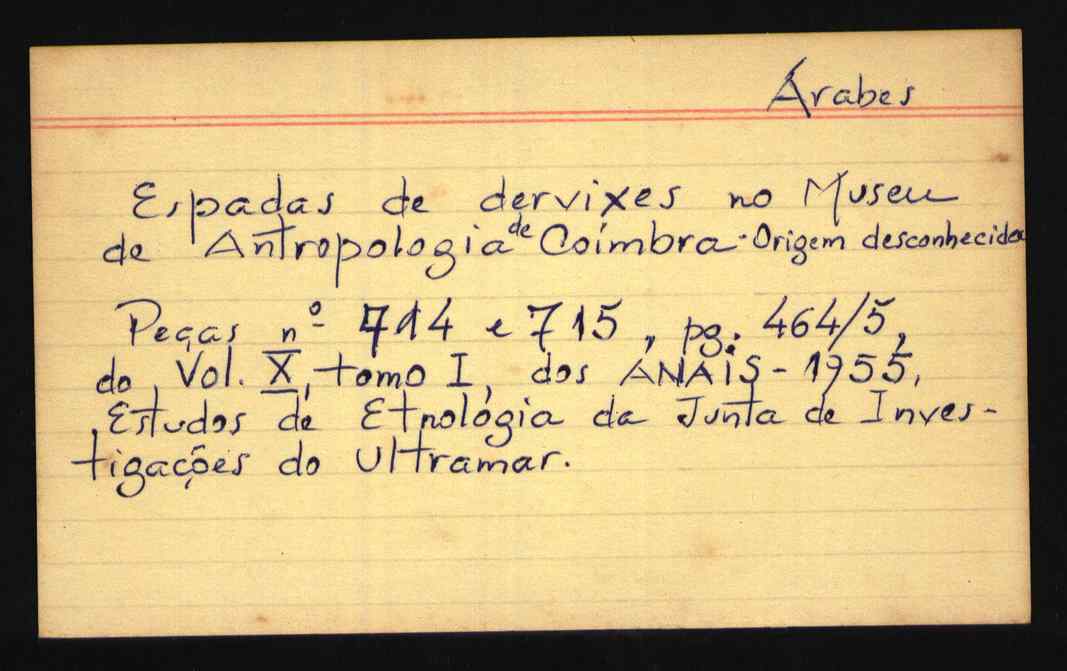 Árabes
Espadas de dervixes no Museu
de Antropologia de Coimbra - Origem desconhecida
Peças nº 714 e 715, pg. 464/5,
do Vol. X, tomo I, dos ANAIS - 1955,
Estudos de Etnológia da Junta de Inves-
tigações do Ultramar.